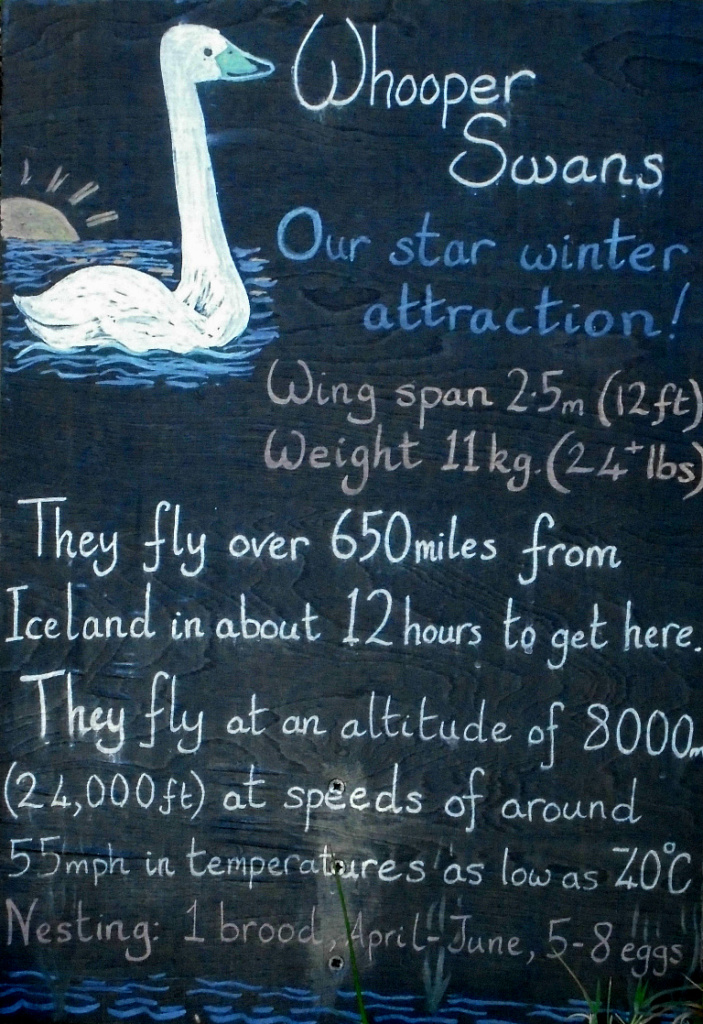 Whooper
Swans
Our star winter
attraction!
Wing span 2.5m (12ft)
Weight 11kg. (24+lbs)
They fly over 650miles from
Iceland in about 12 hours to get here.
They fly at an altitude of 8000m
(24,000ft) at speeds of around
55mph in temperatures as low as 40°C
Nesting: 1 brood, April-June, 5-8 eggs